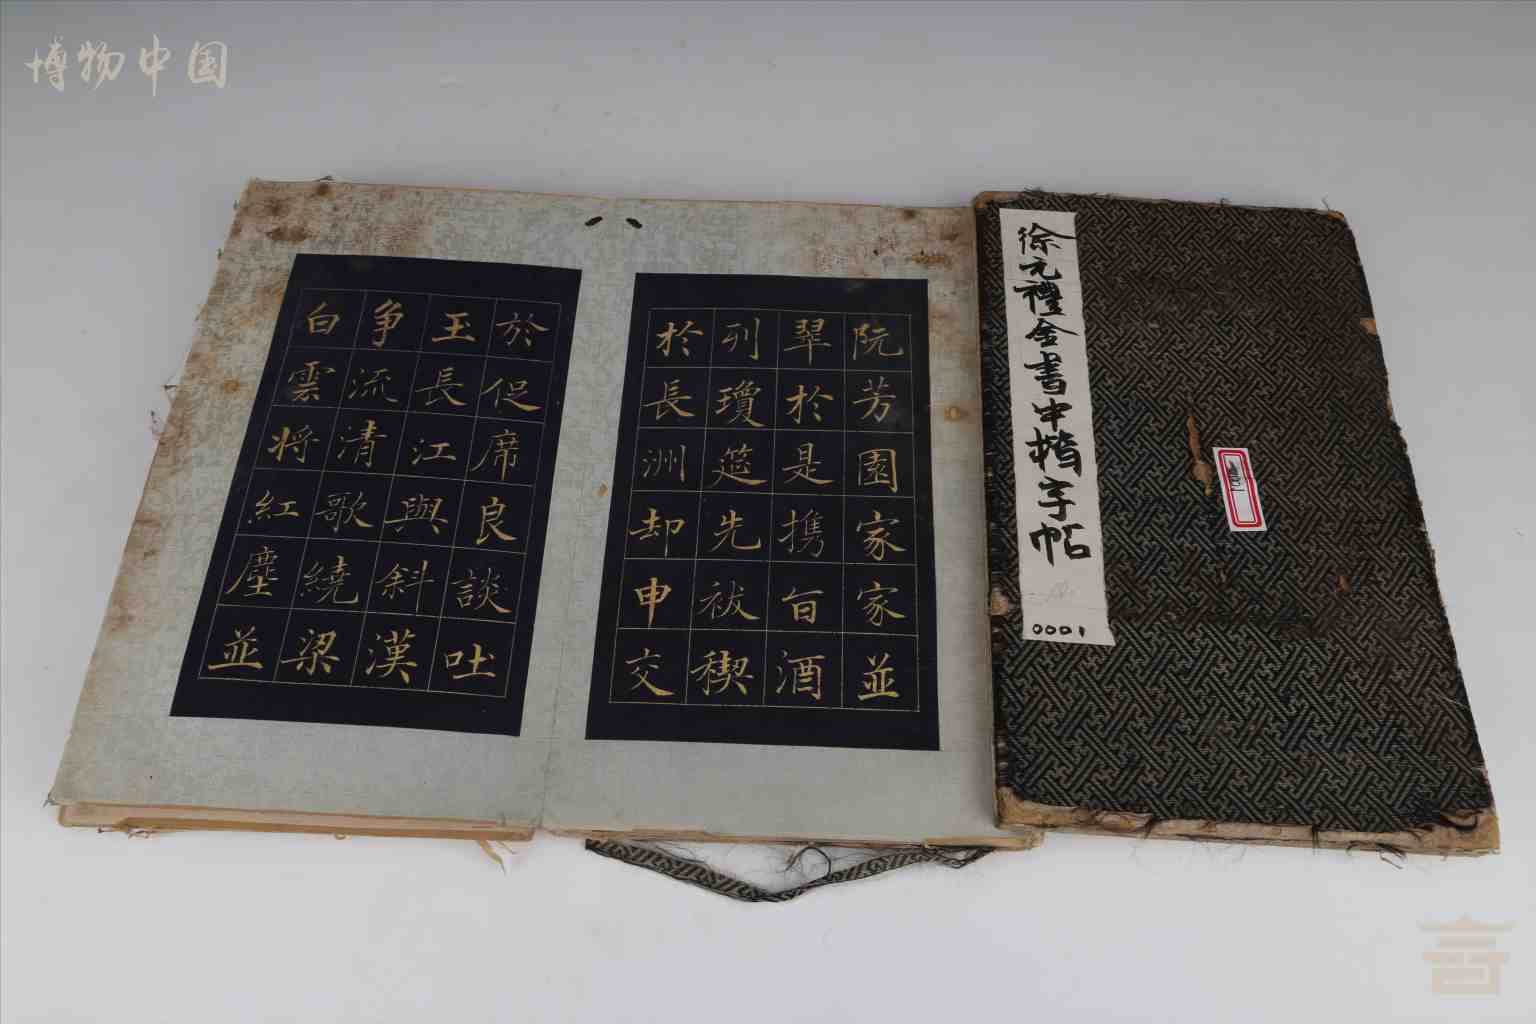 博物中国
徐元禮金書中楷字帖
0001
阮芳園家家並
翠於是携旨酒
列瓊筵先祓稧
於長洲却申交
於促席良談吐
玉長江與斜漢
争流清歌繞梁
白雲将紅塵並